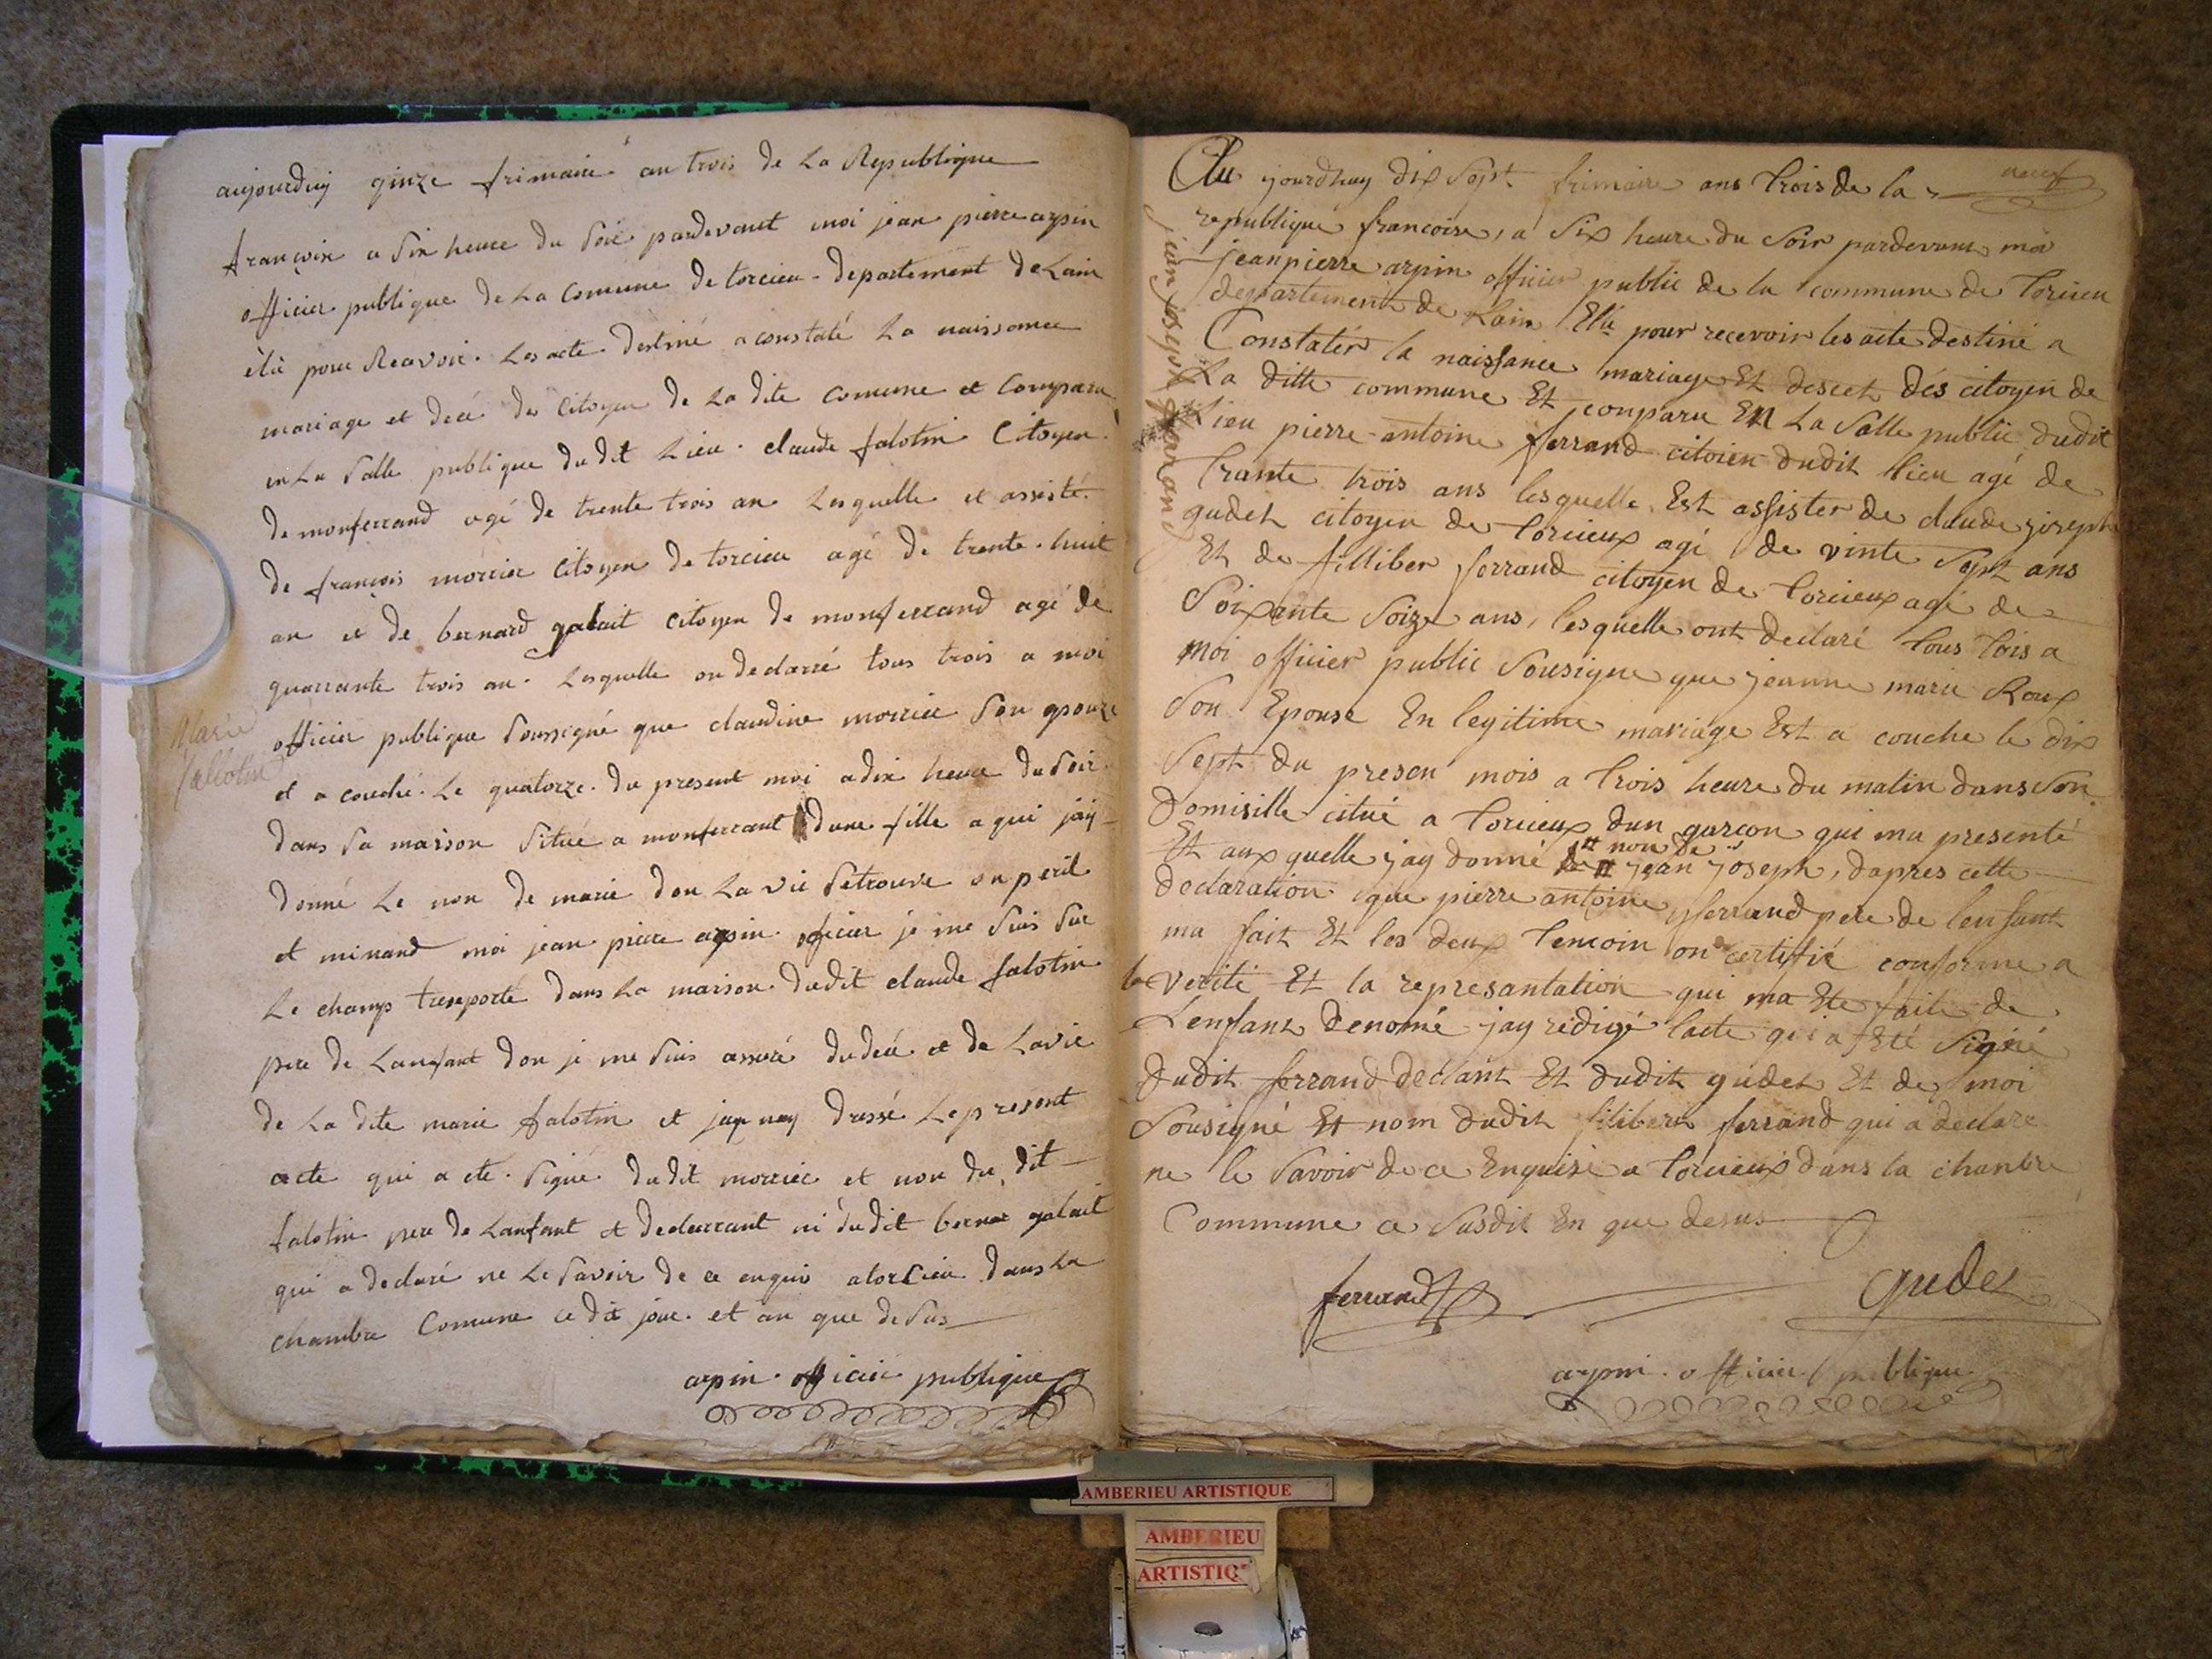 aujourduy qinze frimaire an trois de La Republique
françoix a Six heure du Soir pardevant moi jean pierre arpin
officier publique de La Comune de torcieu departement deLain
élü pour Recevoir Les acte destiné a constaté La naissance
mariage et decé des Citoyen de La dite Comune et Comparu
en La Salle publique dudit Lieu claude falotin Citoyen
de monferrand agé de trente trois an Lesquelle et assisté
de françois morrier Citoyen de torcieu agé de trente huit
an et de bernard galait Citoyen de monferrand agé de
quarrante trois an Lesquelle on declarré tous trois a moi
officier publique Soussigné que claudine morrier Son epouze
et a couché Le quatorze du present moi a dix heure du Soir
dans Sa maison Situé a monferrant dune fille a qui jay
donné Le non de marie don La vie Setrouve en peril
et minand moi jean pierre arpin officier je me Suis Sur
Le champ tresporté dans La maison dudit claude falotin
pere de Lanfant don je me Suis assuré du decé et de Lavie
de La dite marie falotin et jay nay dressé Le present
acte qui a eté Signé dudit morrier et non du dit
falotin pere de Lanfant et declarrant ni dudit bernar galait
qui a declaré ne Le Savoir de ce enquis a torcieu dans La
chambre Comune ce dit jour et an que de Sus
arpin officier publique
Marie
falotin
neuf
Au jourdhuy dix Sept frimaire ans trois de la
republique francoise, a Six heure du Soir pardevant moi
jeanpierre arpin officier public de la commune de Torcieu
departement de Lain Elü pour recevoir les acte destiné a
Constatér la naissance mariage Et descet dés citoyen de
La ditte commune Et conparu EN La Salle public dudit
Lieu pierre antoine ferrand citoien dudit lieu agé de
Trante trois ans lesquelle Est assister de claude joseph
gudet citoyen de Torcieux agé de vinte Sept ans
Et de filliber ferrand citoyen de Torcieux agé de
Soixante Soize ans, lesquelle ont declaré tous tois a
moi officier public Sousigne que jeanne marie Roux
Son Epouse En legitime mariage Est a couche le dix
Sept du presen mois a trois heure du matin dans Son
Domisille citué a Torcieux dun garçon qui ma presenté
Et aux quelle jay donné le non de jean joseph, dapres cette
declaration que pierre antoine ferrand pere de lenfant
ma fait Et les deux temoin on certifié conforme a
la verité Et la represantation qui ma Ete faite de
Lenfant denomé jay rédigé lacte qui a Eté Signé
dudit ferrand declant Et dudit gudet Et de moi
Sousigné Et nom dudit filibert ferrand qui a declare
ne le Savoir de ce Enquise a Torcieux dans la chanbre
Commune ce Susdit En que desus
ferrand gudet
arpin officier publique
jean joseph farand
AMBERIEU ARTISTIQUE
AMBERIEU
ARTISTIQ